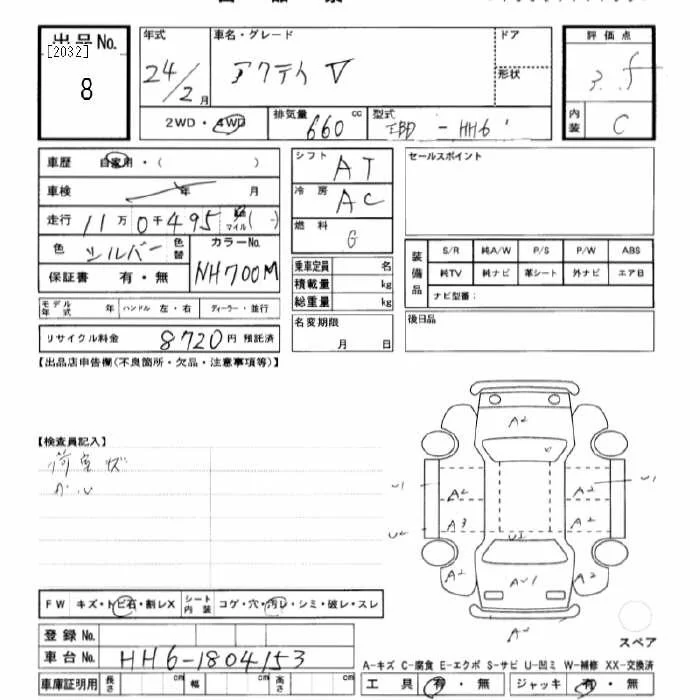 出品No.
[2032]
8
年式
24/2月
車名・グレード
アクティ V
ドア
形状
評価点
3.5
内装
C
2WD・4WD
排気量
660 cc
型式
EBD-HH6
車歴 自家用・( )
車検 年 月
走行 11万0千495 km マイル ( )
色 シルバー 色替
カラーNo.
NH700M
保証書 有・無
モデル年式 年 ハンドル 左・右 ディーラー・並行
リサイクル料金 8720円 預託済
シフト AT
冷房 AC
燃料 G
乗車定員 名
積載量 kg
総重量 kg
名変期限
月 日
セールスポイント
装備品
S/R 純A/W P/S P/W ABS
純TV 純ナビ 革シート 外ナビ エアB
ナビ型番:
後日品
【出品店申告欄(不良箇所・欠品・注意事項等)】
【検査員記入】
荷室キズ
A2
U1
A2
A2
U2
A3
U3
A2
A2
AU1
A2
スペア
FW キズ・トビ石・割レX シート内装 コゲ・穴・汚レ・シミ・破レ・スレ
登録No.
車台No. HH6-1804153
車庫証明用 長さ cm 幅 cm 高さ cm
A-キズ C-腐食 E-エクボ S-サビ U-凹ミ W-補修 XX-交換済
工具 有・無 ジャッキ 有・無